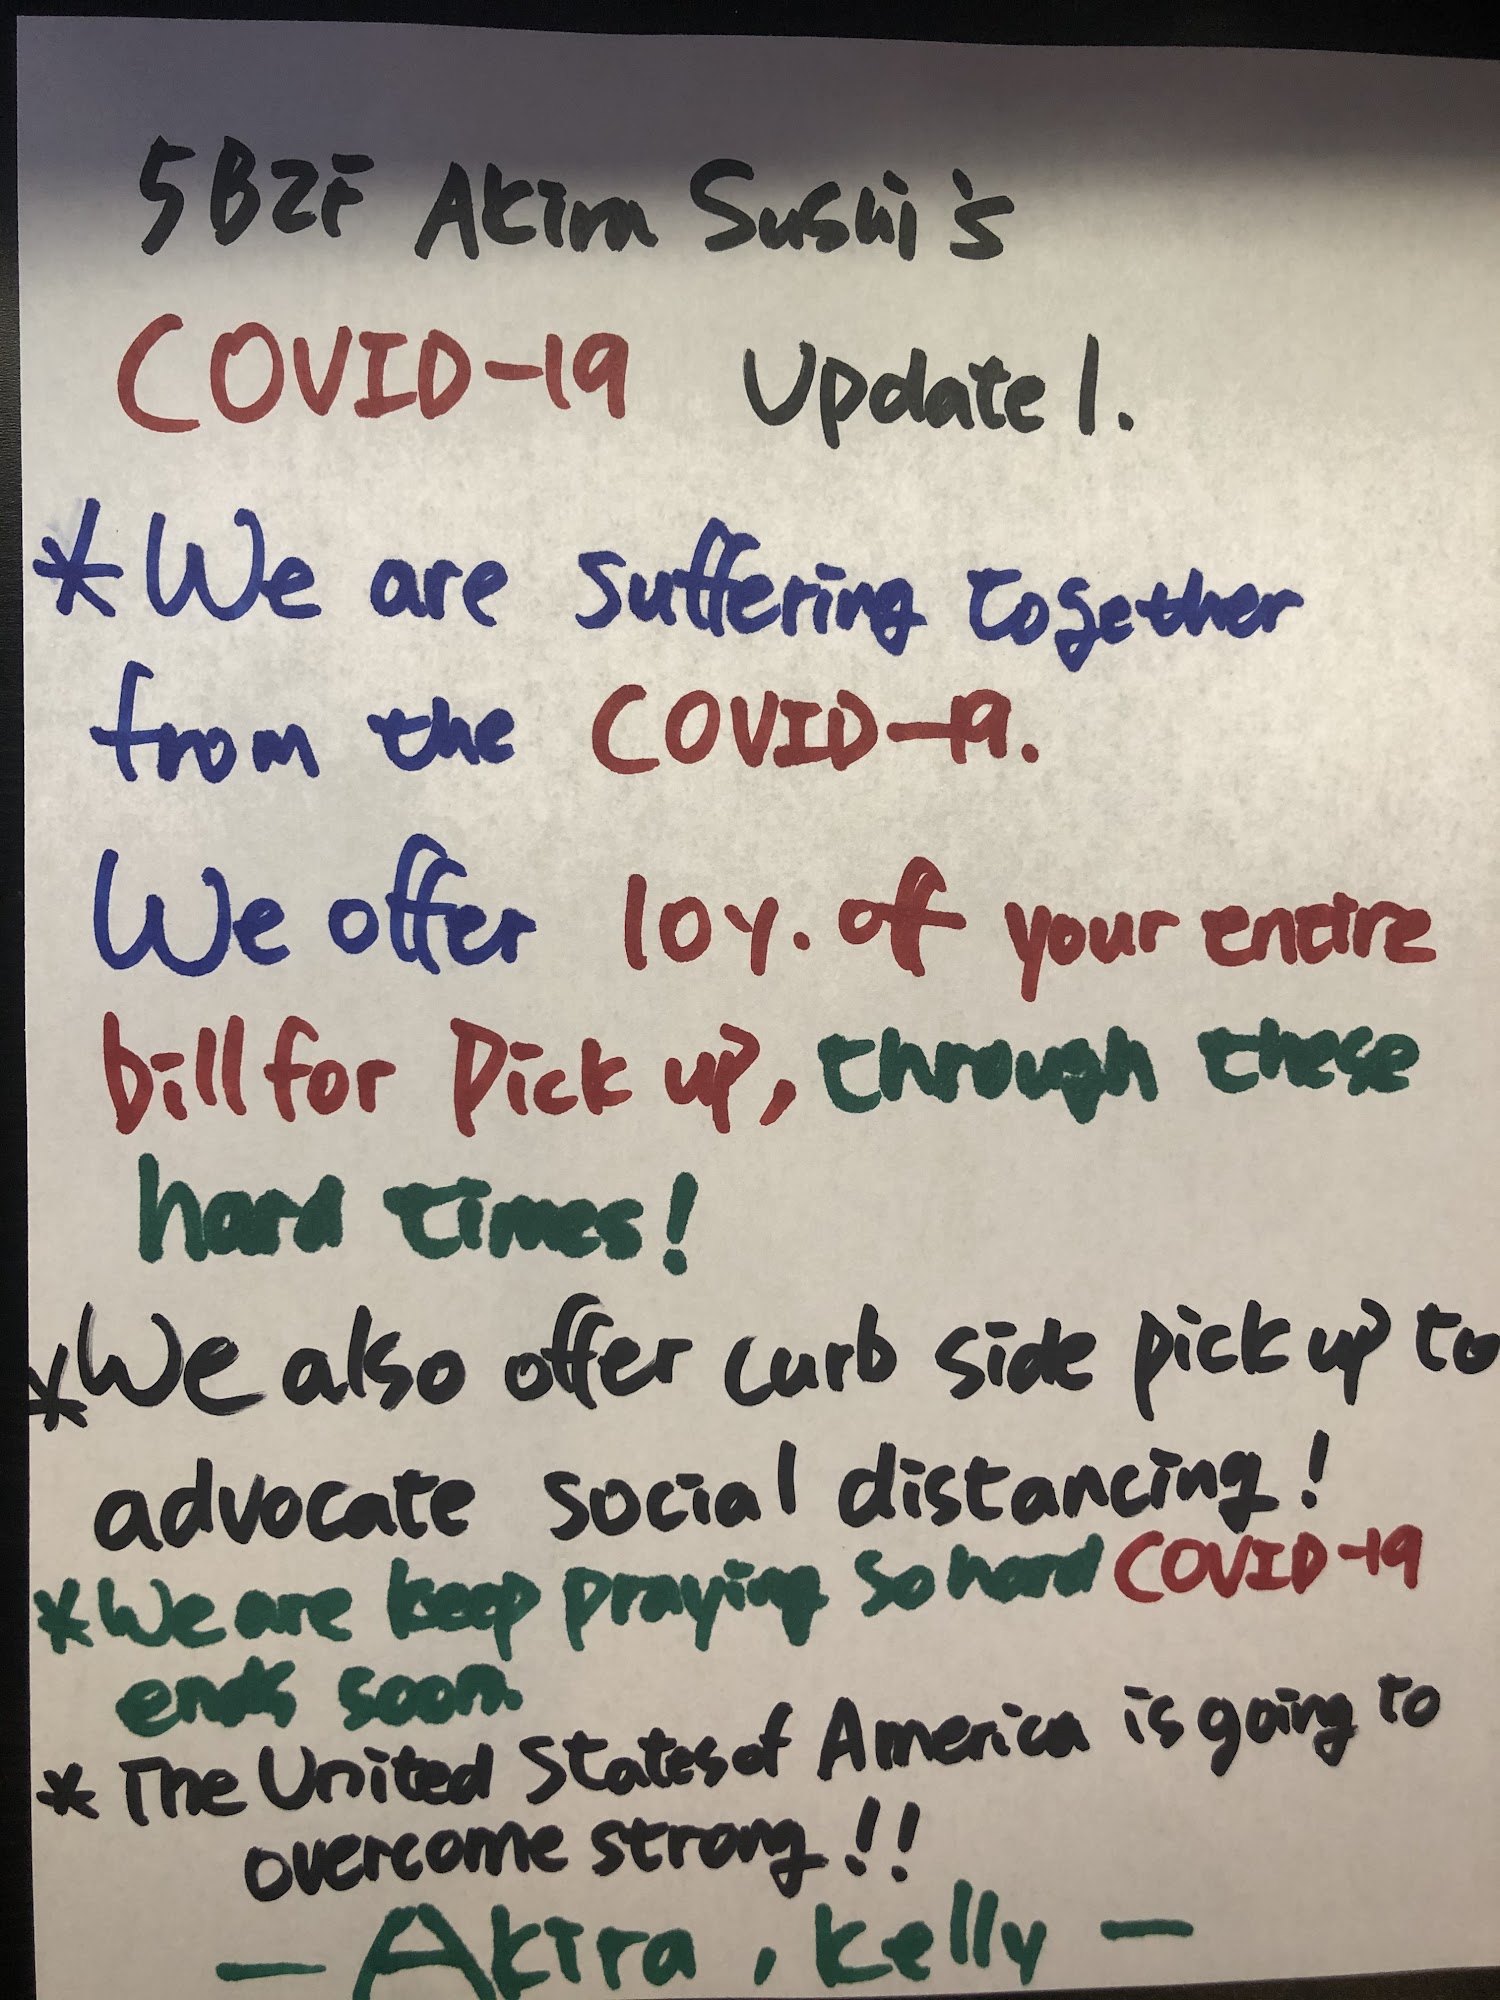 5B2F Akira Sushi's
COVID-19 Update 1.
* We are suffering together
from the COVID-19.
We offer 10%. of your entire
bill for Pick up, through these
hard times!
* We also offer curb side pick up to
advocate social distancing!
* We are keep praying so hard COVID-19
ends soon.
* The United States of America is going to
overcome strong!!
- Akira, Kelly -